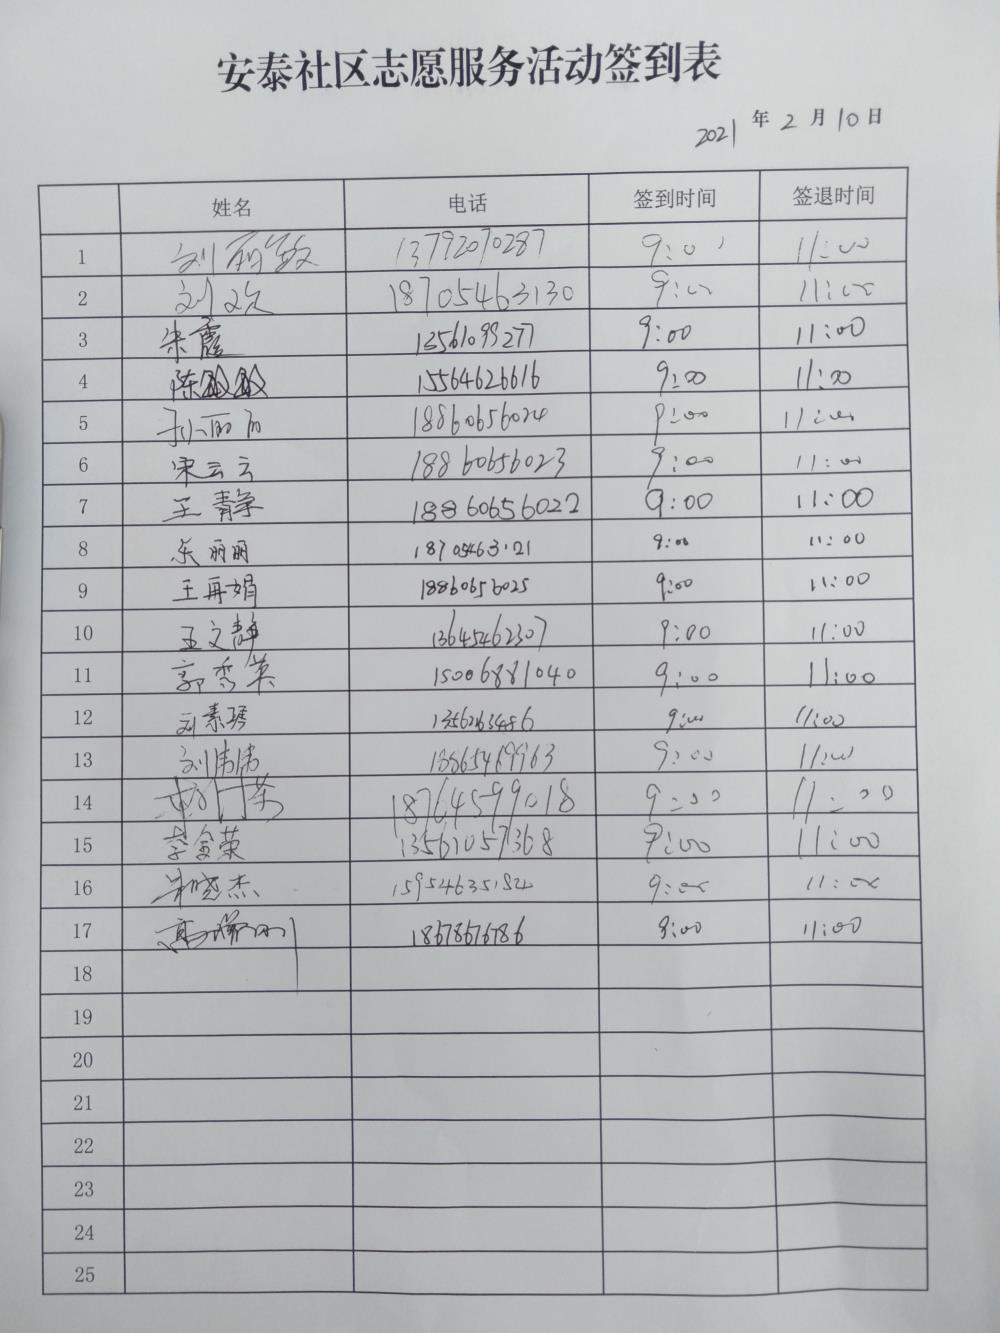 安泰社区志愿服务活动签到表
2021 年 2 月 10 日
姓名 电话 签到时间 签退时间
1 刘丽敏 13792070287 9:00 11:00
2 刘 18705463130 9:00 11:00
3 朱霞 13561099277 9:00 11:00
4 陈敏敏 15564626616 9:00 11:00
5 孙丽丽 18860656024 9:00 11:00
6 宋云云 18860656023 9:00 11:00
7 王静 18860656022 9:00 11:00
8 东丽丽 18705463121 9:00 11:00
9 王再娟 18860656025 9:00 11:00
10 王文静 13645462307 9:00 11:00
11 郭秀英 15006881040 9:00 11:00
12 刘素琴 1356263486 9:00 11:00
13 刘伟伟 13865469963 9:00 11:00
14 18764599018 9:00 11:00
15 李金荣 13561057368 9:00 11:00
16 朱晓杰 15954635182 9:00 11:00
17 18678676786 9:00 11:00
18
19
20
21
22
23
24
25